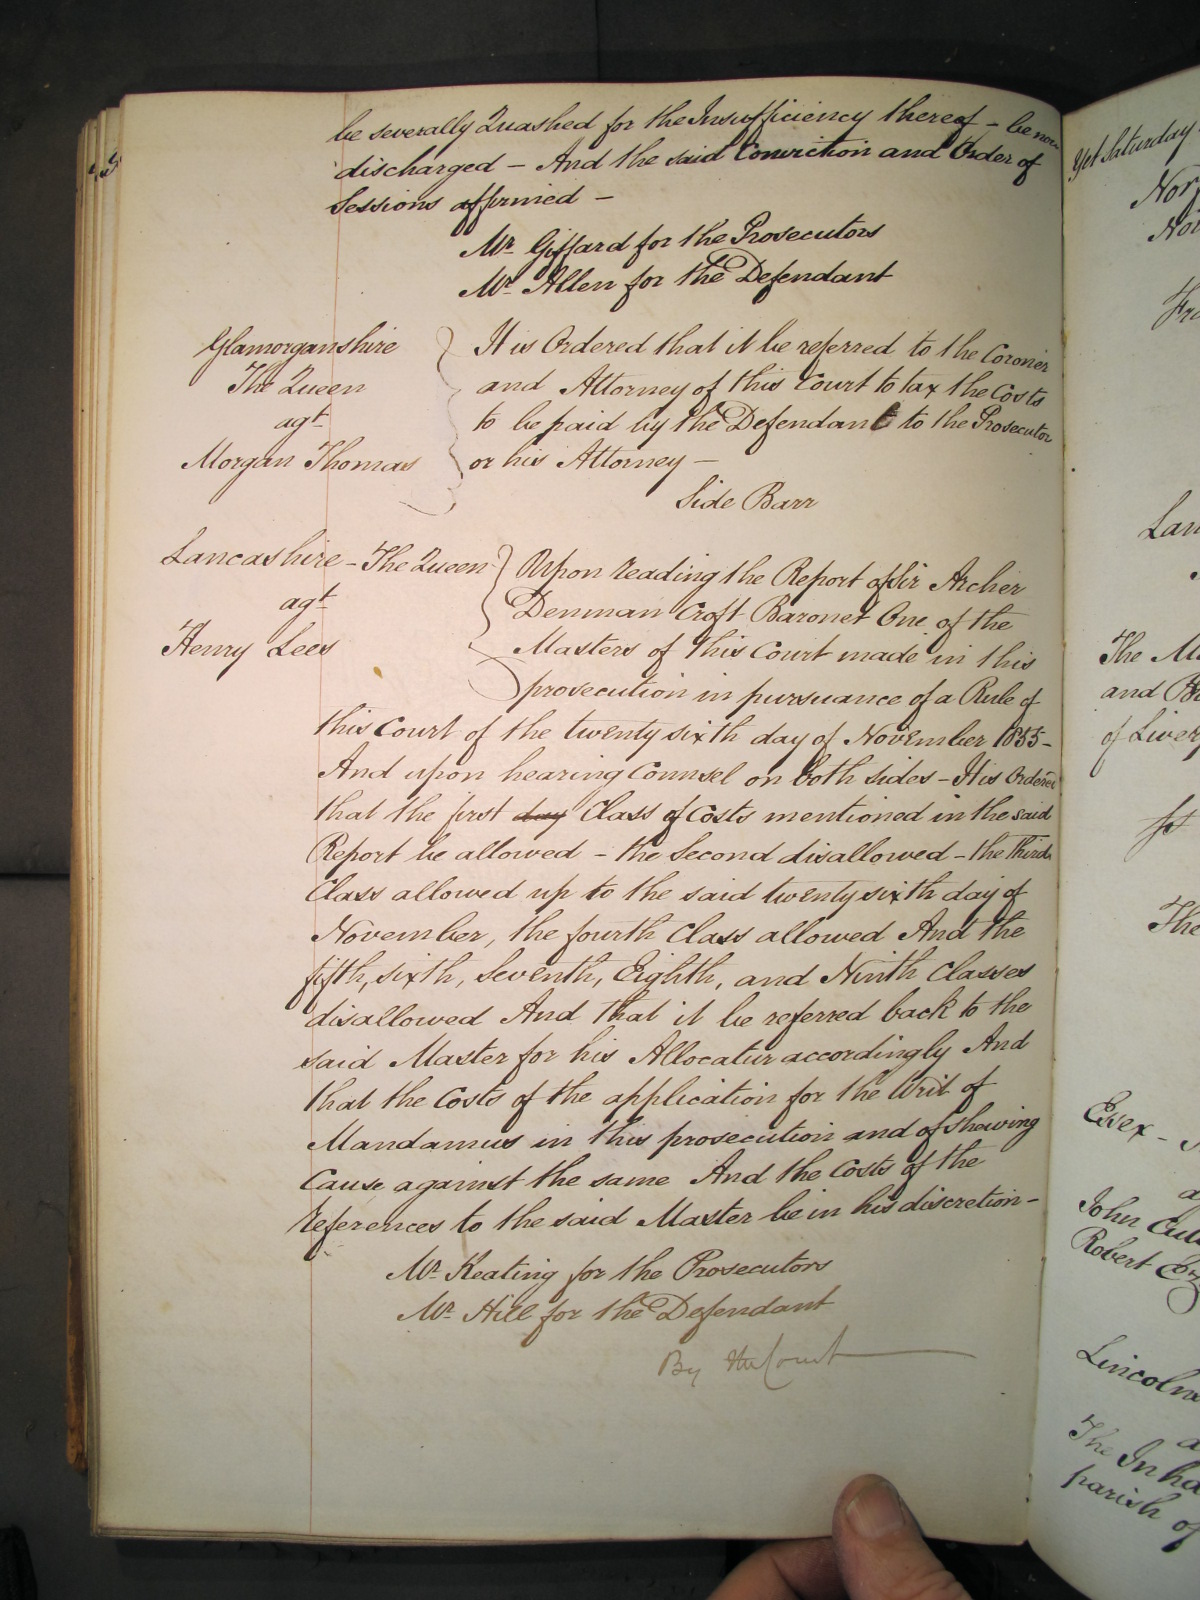 be severally Quashed for the Insufficiency thereof - be now
discharged - And the said Conviction and Order of
Sessions affirmed -
Mr. Giffard for the Prosecutors
Mr. Allen for the Defendant
Glamorganshire
The Queen
agt.
Morgan Thomas
It is Ordered that it be referred to the Coroner
and Attorney of this Court to tax the Costs
to be paid by the Defendant to the Prosecutor
or his Attorney -
Side Barr
Lancashire - The Queen
agt.
Henry Lees
Upon reading the Report of Sir Archer
Denman Croft Baronet One of the
Masters of this Court made in this
prosecution in pursuance of a Rule of
this Court of the twenty sixth day of November 1855 -
And upon hearing Counsel on both sides - It is Ordered
that the first day Class of Costs mentioned in the said
Report be allowed - the Second disallowed - the third
Class allowed up to the said twenty sixth day of
November, the fourth Class allowed And the
fifth, sixth, Seventh, Eighth, and Ninth Classes
disallowed And that it be referred back to the
said Master for his Allocatur accordingly And
that the Costs of the application for the Writ of
Mandamus in this prosecution and of shewing
Cause against the same And the Costs of the
references to the said Master be in his discretion -
Mr. Keating for the Prosecutors
Mr. Hill for the Defendant
By the Court
Yet Saturday
The
and
of Liver
The
Essex -
John
Robert
Lincoln
The Inha
parish of